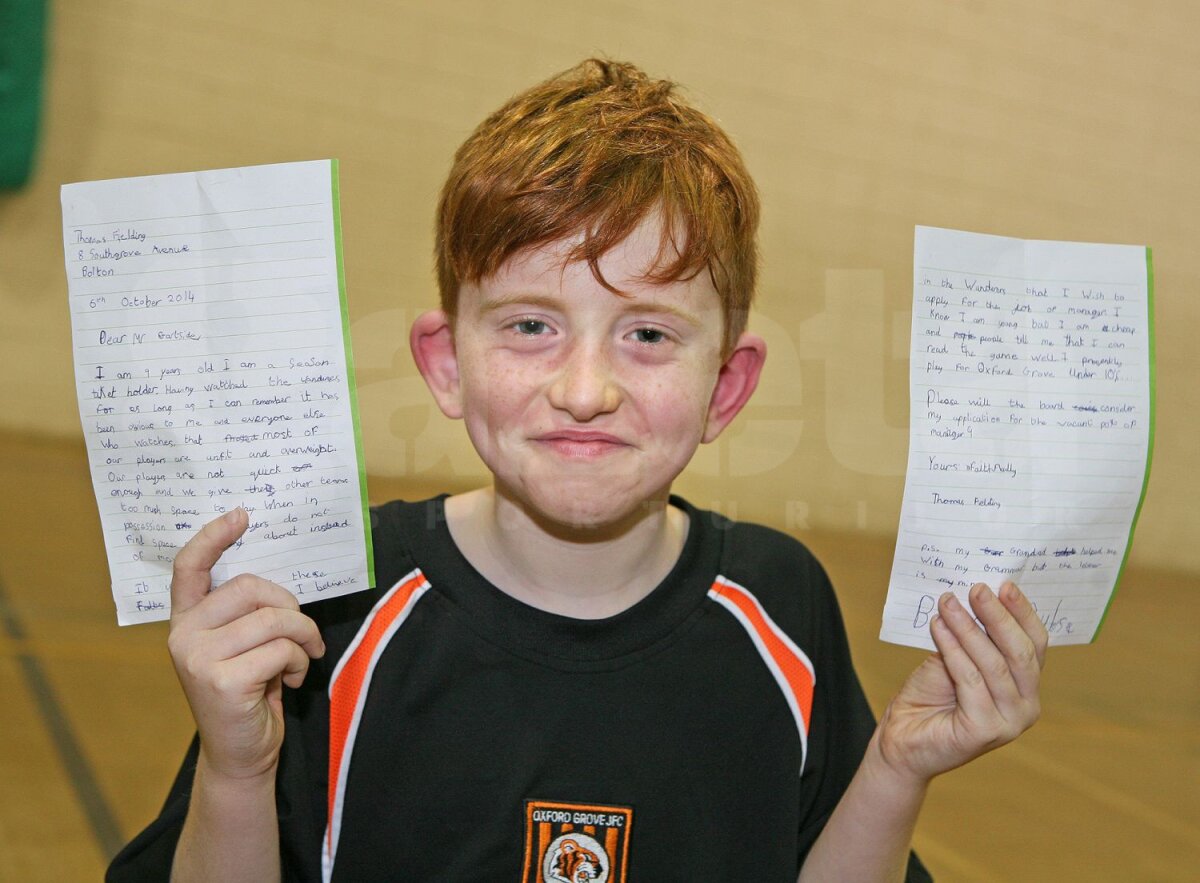 Thomas Fielding
8 Southgrove Avenue
Bolton
6th October 2014
Dear Mr Gartside,
I am 9 years old I am a season
ticket holder. Having watched the wanderers
for as long as I can remember it has
been obvious to me and everyone else
who watches that most of
our players are unfit and overweight.
Our players are not quick
enough and we give other teams
too much space to play when in
possession do not
find space about instead
of
It these
I believe
in the Wanderers that I wish to
apply for the job of manager. I
know I am young but I am cheap
and people tell me that I can
read the game well. I presently
play for Oxford Grove Under 10's...
Please will the board consider
my application for the vacant post of
manager?
Yours faithfully
Thomas Fielding
p.s. my Grandad helped me
with my Grammar but the
is my
OXFORD GROVE JFC
SPORT